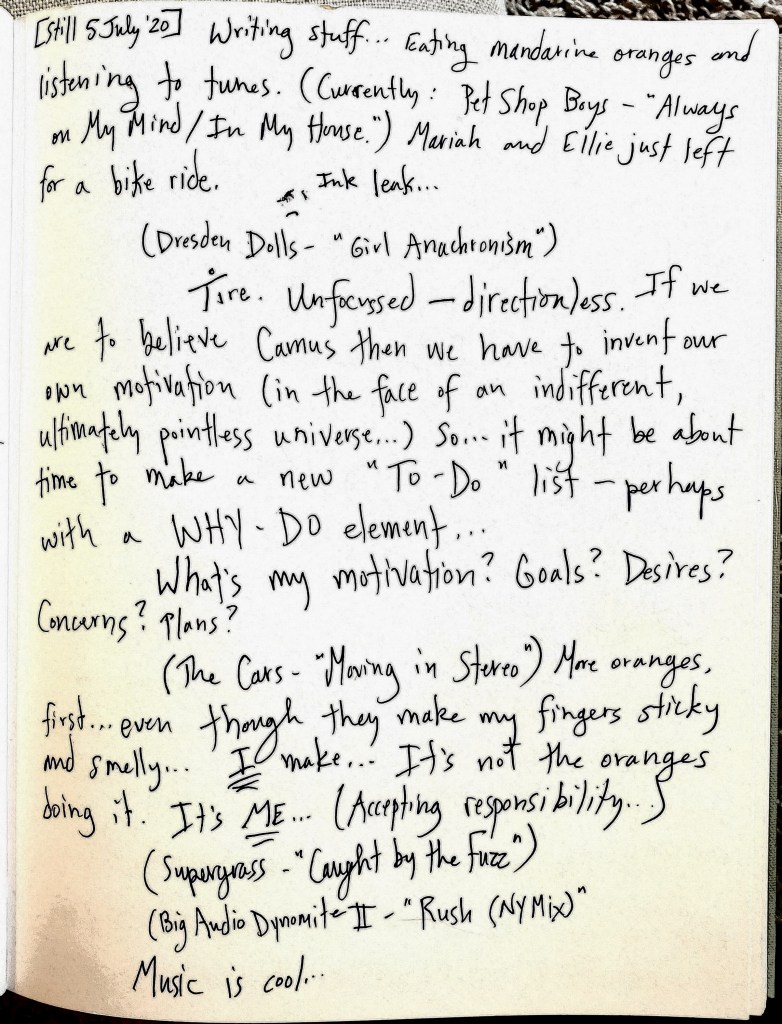 [Still 5 July '20] Writing stuff... Eating mandarine oranges and
listening to tunes. (Currently: Pet Shop Boys - "Always
on My Mind/In My House.") Mariah and Ellie just left
for a bike ride.
Ink leak...
(Dresden Dolls - "Girl Anachronism")
Tire. Unfocussed — directionless. If we
are to believe Camus then we have to invent our
own motivation (in the face of an indifferent,
ultimately pointless universe...) So... it might be about
time to make a new "To-Do" list — perhaps
with a WHY-DO element...
What's my motivation? Goals? Desires?
Concerns? Plans?
(The Cars - "Moving in Stereo") More oranges,
first... even though they make my fingers sticky
and smelly... I make... It's not the oranges
doing it. It's ME... (Accepting responsibility...)
(Supergrass - "Caught by the Fuzz")
(Big Audio Dynamite II - "Rush (NY Mix)"
Music is cool...